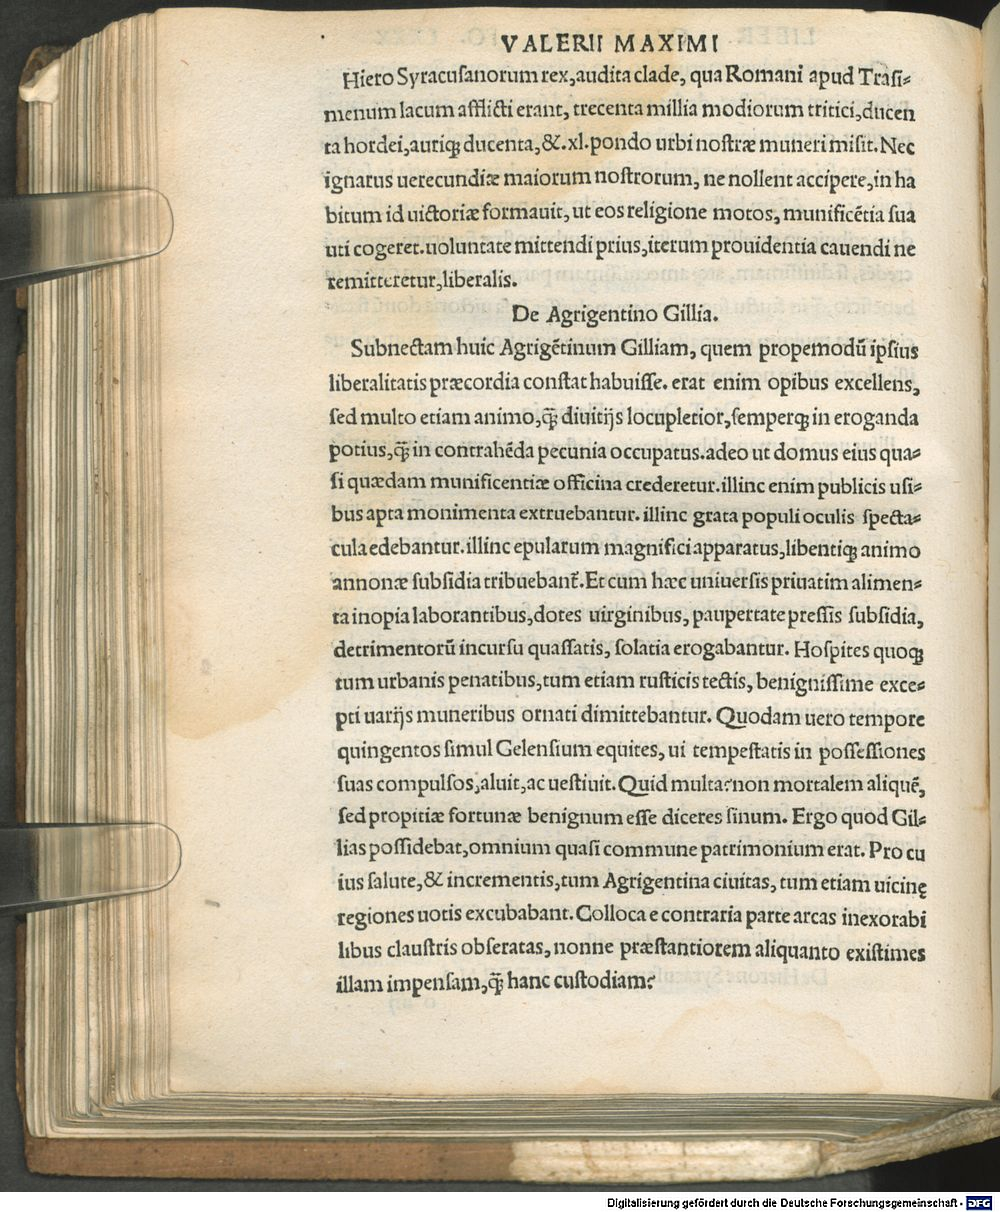 VALERII MAXIMI
Hiero Syracusanorum rex, audita clade, qua Romani apud Trasi-
menum lacum afflicti erant, trecenta millia modiorum tritici, ducen
ta hordei, auriq; ducenta, &. xl. pondo urbi nostræ muneri misit. Nec
ignarus uerecundiæ maiorum nostrorum, ne nollent accipere, in ha
bitum id uictoriæ formauit, ut eos religione motos, munificẽtia sua
uti cogeret. uoluntate mittendi prius, iterum prouidentia cauendi ne
remitteretur, liberalis.
De Agrigentino Gillia.
Subnectam huic Agrigẽtinum Gilliam, quem propemodũ ipsius
liberalitatis præcordia constat habuisse. erat enim opibus excellens,
sed multo etiam animo, q̃ diuitijs locupletior, semperq; in eroganda
potius, q̃ in contrahẽda pecunia occupatus. adeo ut domus eius qua-
si quædam munificentiæ officina crederetur. illinc enim publicis usi-
bus apta monimenta extruebantur. illinc grata populi oculis specta-
cula edebantur. illinc epularum magnifici apparatus, libentiq; animo
annonæ subsidia tribuebant̃. Et cum hæc uniuersis priuatim alimen-
ta inopia laborantibus, dotes uirginibus, paupertate pressis subsidia,
detrimentorũ incursu quassatis, solatia erogabantur. Hospites quoq;
tum urbanis penatibus, tum etiam rusticis tectis, benignissime exce-
pti uarijs muneribus ornati dimittebantur. Quodam uero tempore
quingentos simul Gelensium equites, ui tempestatis in possessiones
suas compulsos, aluit, ac uestiuit. Quid multa? non mortalem aliquẽ,
sed propitiæ fortunæ benignum esse diceres sinum. Ergo quod Gil-
lias possidebat, omnium quasi commune patrimonium erat. Pro cu
ius salute, & incrementis, tum Agrigentina ciuitas, tum etiam uicinę
regiones uotis excubabant. Colloca e contraria parte arcas inexorabi
libus claustris obseratas, nonne præstantiorem aliquanto existimes
illam impensam, q̃ hanc custodiam?
Digitalisierung gefördert durch die Deutsche Forschungsgemeinschaft - DFG